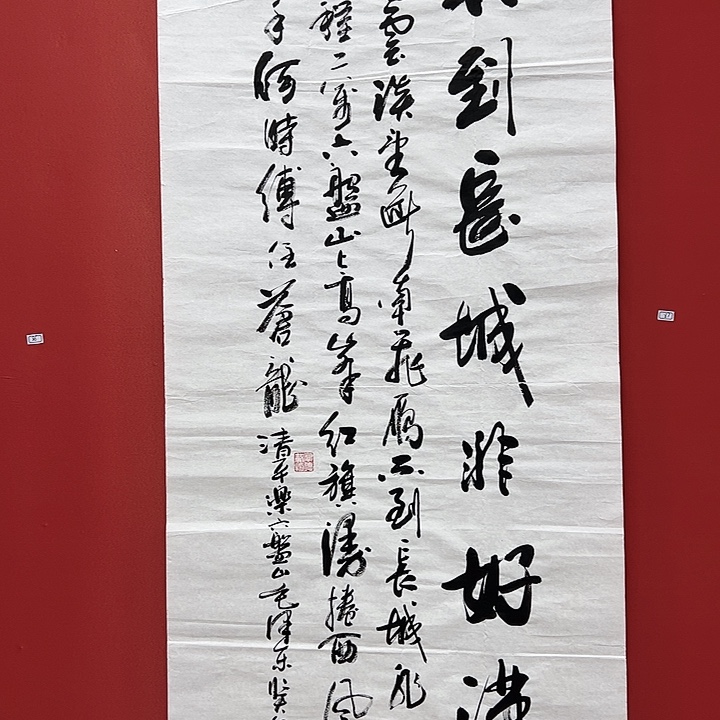 到長城非好漢
雲淡望斷南飛雁不到長城非
程二萬六盤山上高峰紅旗漫捲西風
手何時縛住蒼龍
清平樂六盤山毛澤東